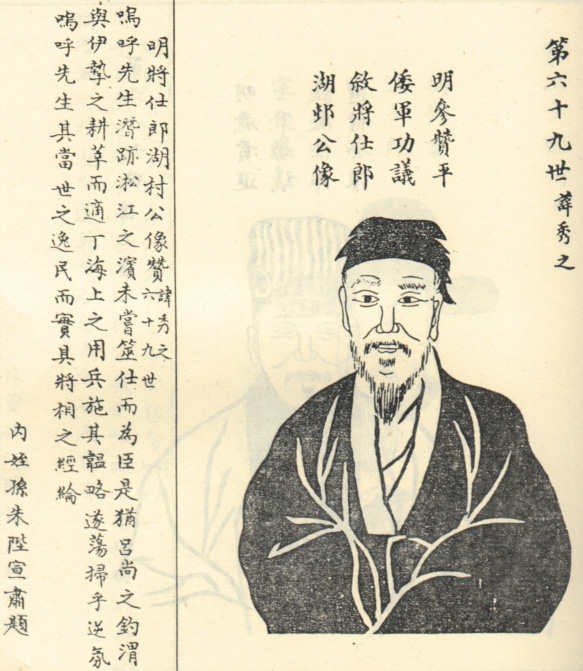 第六十九世 諱秀之
明參贊平
倭軍功議
敘將仕郎
湖邨公像
明將仕郎湖村公像贊 諱秀之 六十九世
嗚呼先生潛跡淞江之濱未嘗筮仕而為臣是猶呂尚之釣渭
與伊摯之耕莘而適丁海上之用兵施其韞略遂蕩掃乎逆氛
嗚呼先生其當世之逸民而實具將相之經綸
內姪孫朱陛宣肅題